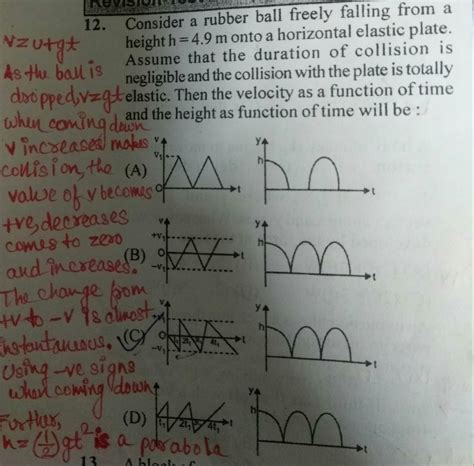 12. Consider a rubber ball freely falling from a
height h = 4.9 m onto a horizontal elastic plate.
Assume that the duration of collision is
negligible and the collision with the plate is totally
elastic. Then the velocity as a function of time
and the height as function of time will be :
v=u+gt
As the ball is
dropped, v=gt
when coming down
v increases makes
collision, the
value of v becomes
+ve, decreases
comes to zero
and increases.
The change from
+v to -v is almost
instantaneous.
Using -ve signs
when coming down
Further,
h=(1/2)gt² is a parabola
(A)
v
v₁
O
t
y
h
t
(B)
v
+v₁
O
-v₁
t
y
h
t
(C)
v
+v₁
O
-v₁
t₁
2t₁
4t₁
t
y
h
t
(D)
v
t₁
2t₁
4t₁
t
y
h
t
13
A block of